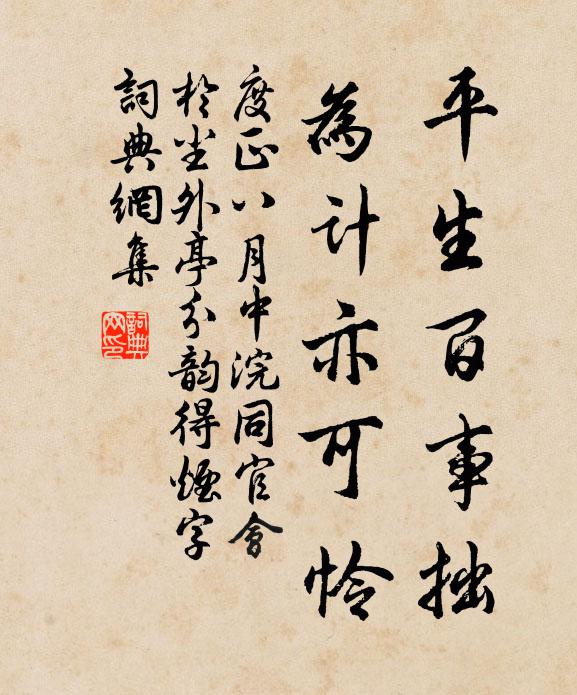 平生百事拙
為計亦可怜
度正八月中浣同官會
於坐外亭分韵得煙字
詞典網集
詞典網印